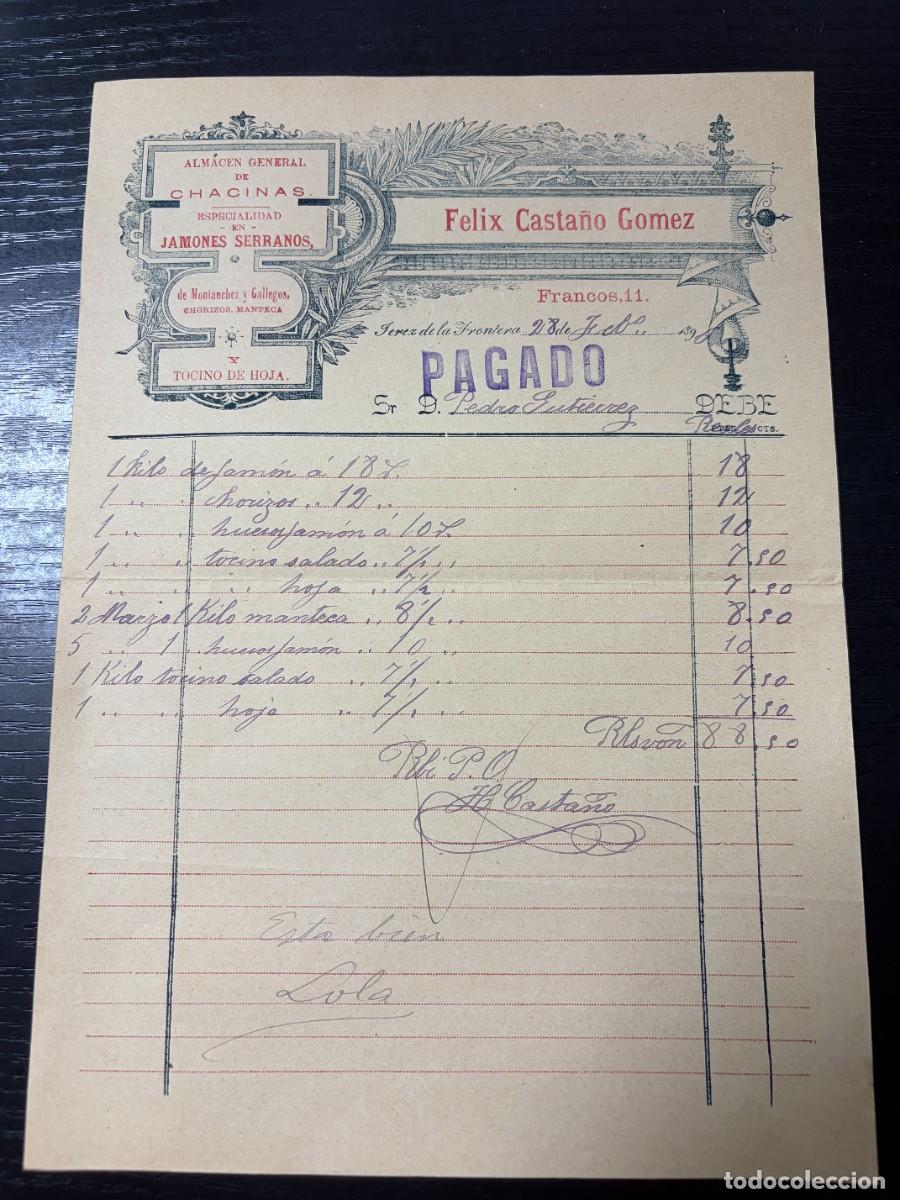 ALMACEN GENERAL
DE
CHACINAS.
ESPECIALIDAD
- EN -
JAMONES SERRANOS,
de Montanchez y Gallegos,
CHORIZOS, MANTECA
Y
TOCINO DE HOJA.
Felix Castaño Gomez
Francos, 11.
Jerez de la Frontera 28 de Feb.º 189
PAGADO
Sr D. Pedro Gutierrez DEBE
Reales CTS.
1 Kilo de Jamón á 18 18
1 " " chorizos " 12 " 12
1 " " huesos Jamón á 10 10
1 " " tocino salado " 7 1/2 " 7.50
1 " " " hoja " 7 1/2 " 7.50
2 Marzo 1 Kilo manteca " 8 1/2 " 8.50
5 " 1 " huesos Jamón " 10 " 10
1 Kilo tocino salado " 7 1/2 " 7.50
1 " " hoja " 7 1/2 " 7.50
Rlsvón 88.50
Rbi P.O
H. Castaño
Esta bien
Lola
todocoleccion